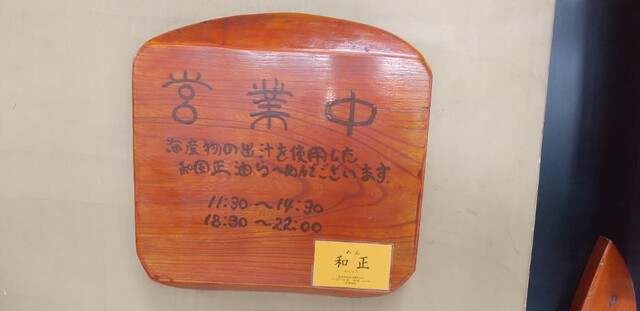 営業中
海産物の出汁を使用した
和風正油らーめんでございます
11:30～14:30
18:30～22:00
めん
和正